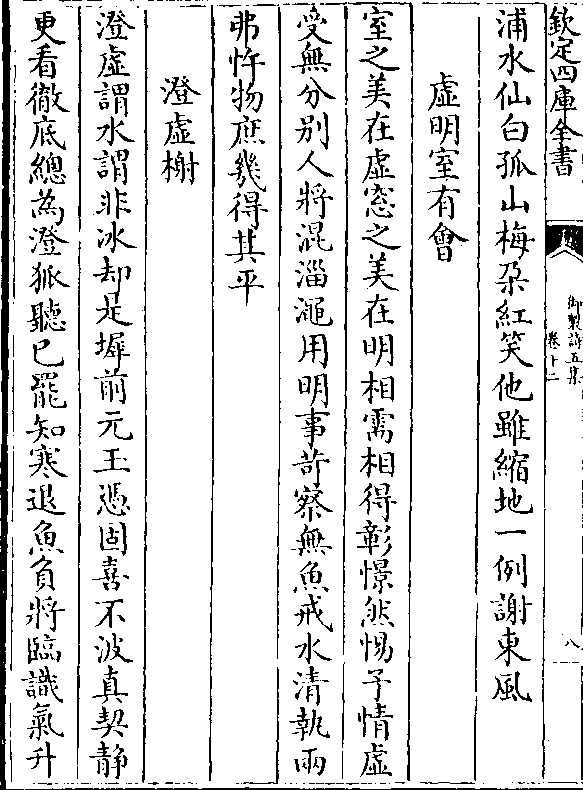 欽定四庫全書
御製詩五集
卷十二
八
浦水仙白孤山梅朶紅笑他雖縮地一例謝東風
虛明室有會
室之美在虛窓之美在明相需相得彰憬然惕予情虛
受無分别人將混淄澠用明事苛察無魚戒水清執兩
弗忤物庶幾得其平
澄虛榭
澄虛謂水謂非冰却是墀前元玉憑固喜不波真契静
更看徹底總為澄狐聽已罷知寒退魚負將臨識氣升